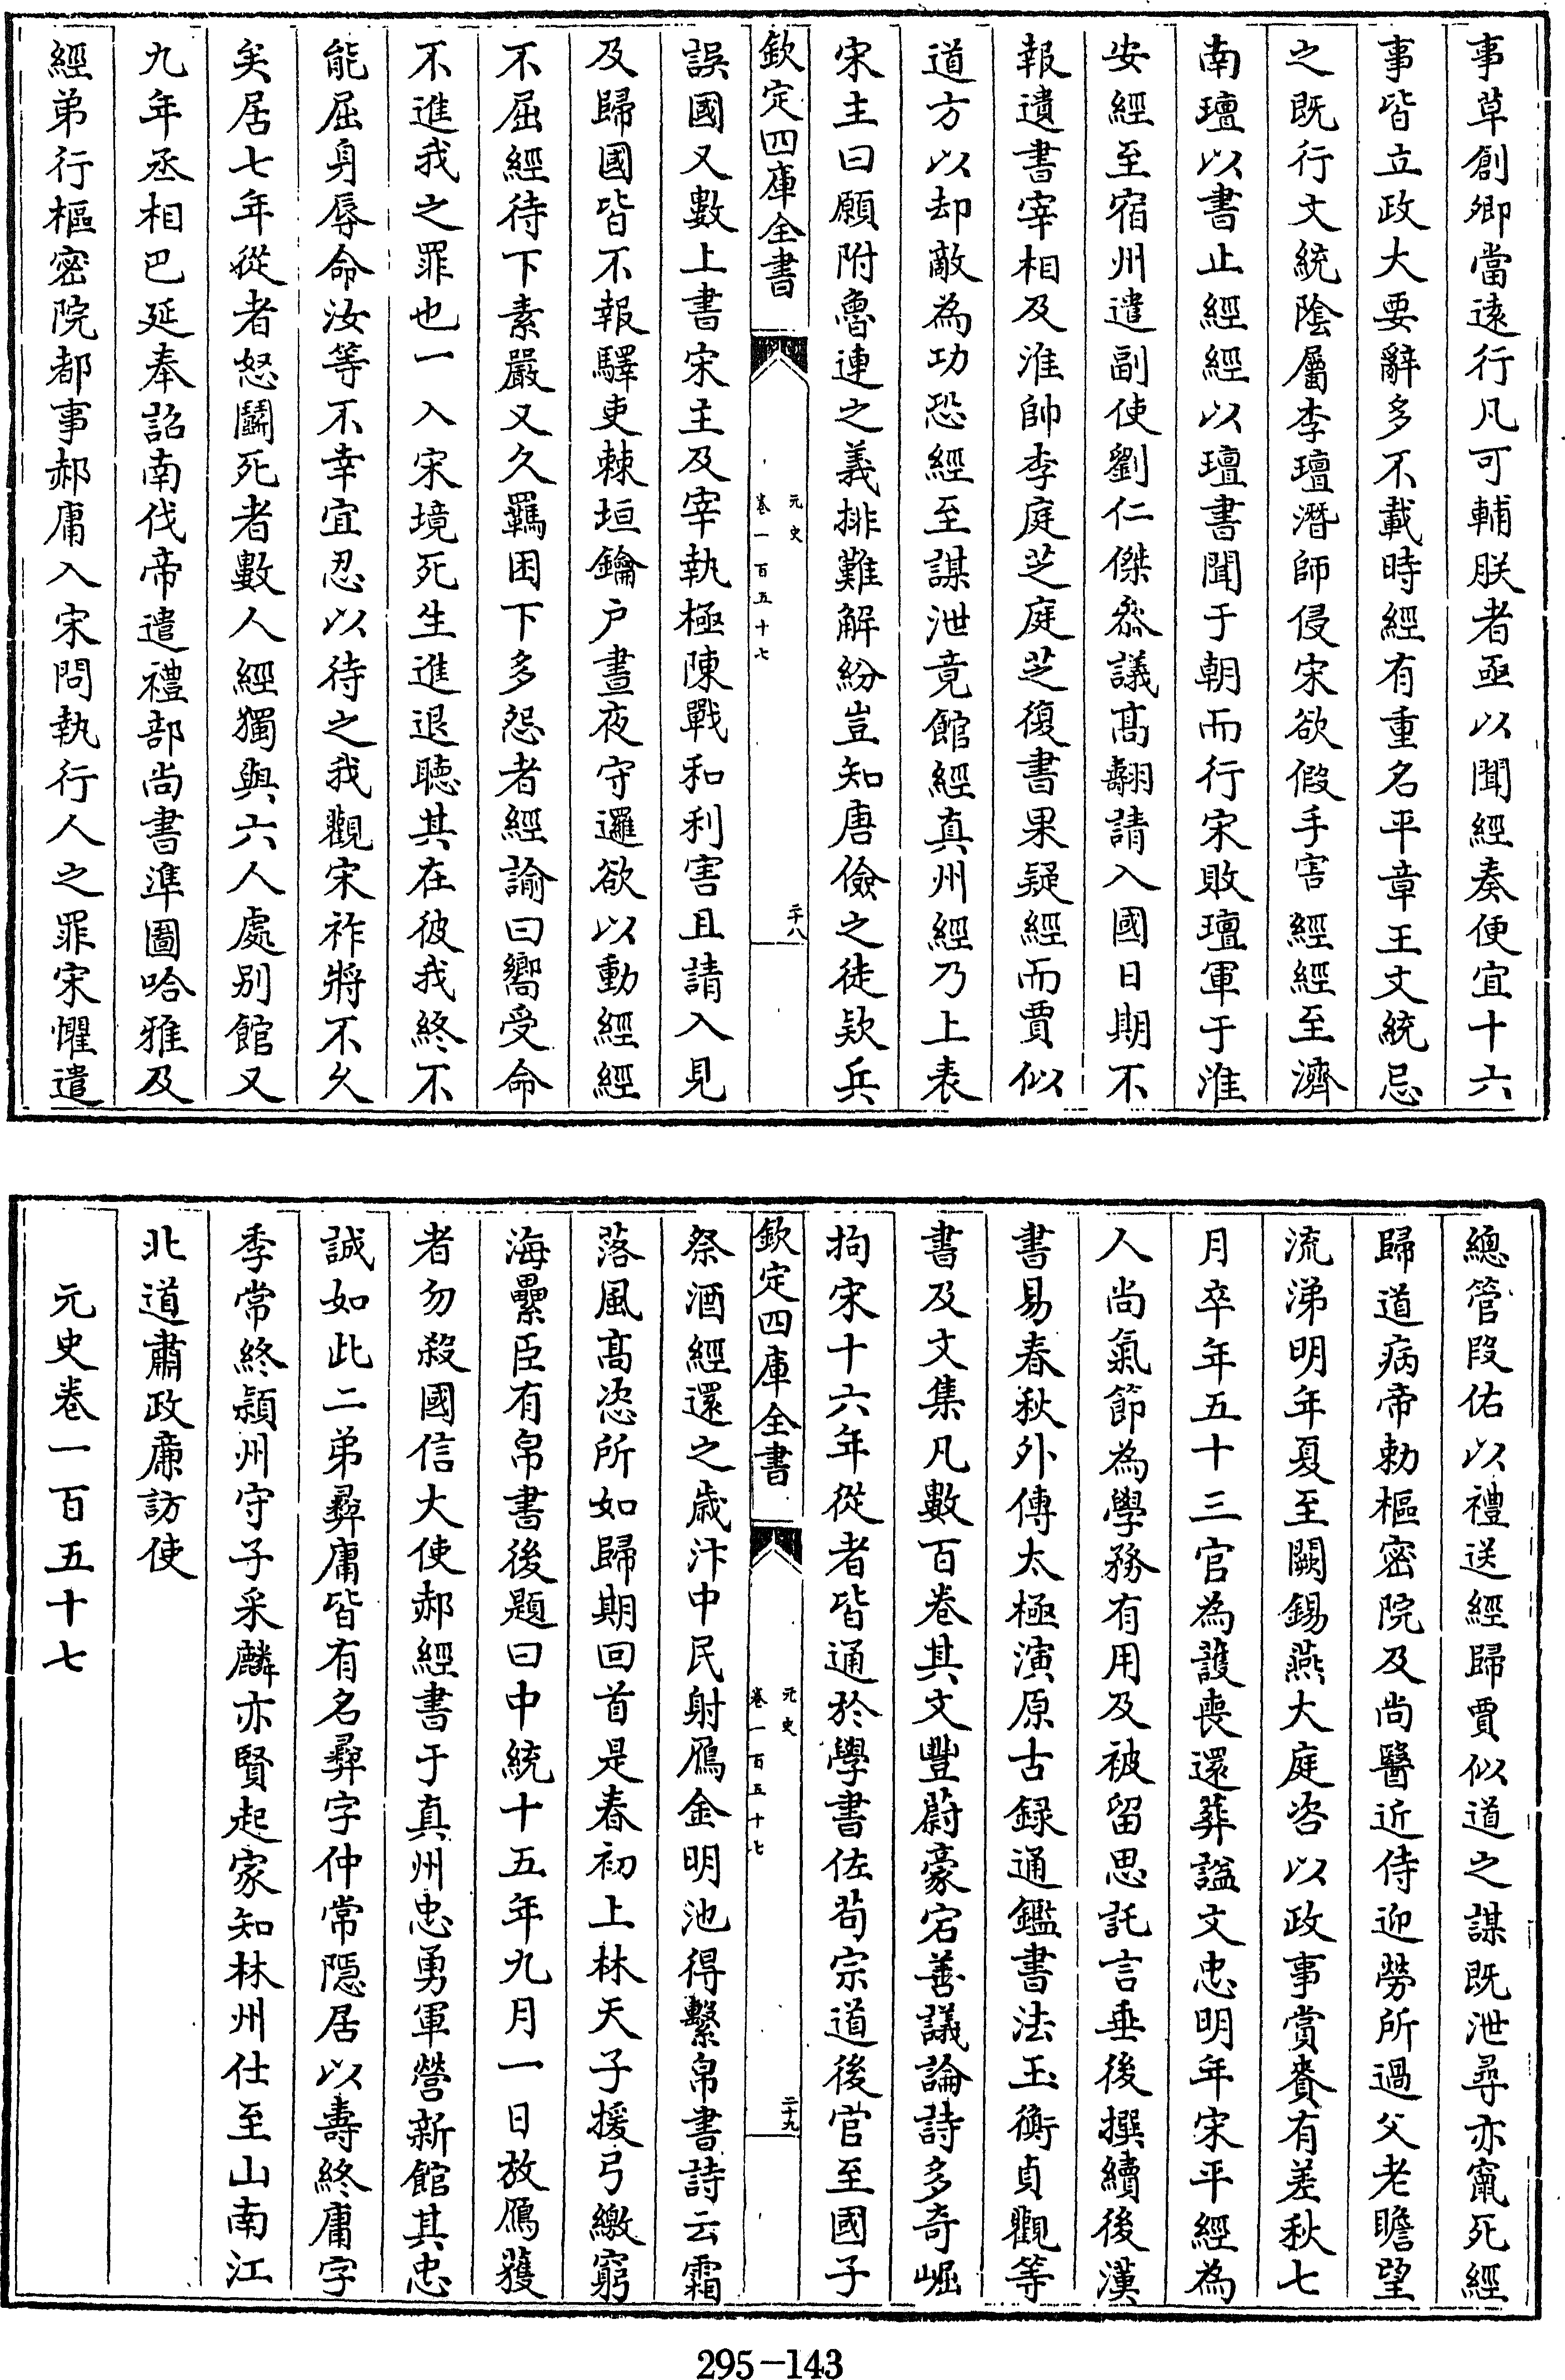 事草創卿當遠行凡可輔朕者亟以聞經奏便宜十六
事皆立政大要辭多不載時經有重名平章王文統忌
之既行文統陰屬李璮潛師侵宋欲假手害經經至濟
南璮以書止經經以璮書聞于朝而行宋敗璮軍于淮
安經至宿州遣副使劉仁傑叅議髙翿請入國日期不
報遺書宰相及淮帥李庭芝庭芝復書果疑經而賈似
道方以却敵為功恐經至謀泄竟館經真州經乃上表
宋主曰願附魯連之義排難解紛豈知唐儉之徒欵兵
欽定四庫全書
元史
卷一百五十七
二十八
誤國又數上書宋主及宰執極陳戰和利害且請入見
及歸國皆不報驛吏棘垣鑰户晝夜守邏欲以動經經
不屈經待下素嚴又久羈困下多怨者經諭曰嚮受命
不進我之罪也一入宋境死生進退聽其在彼我終不
能屈身辱命汝等不幸宜忍以待之我觀宋祚將不久
矣居七年從者怒鬭死者數人經獨與六人處别館又
九年丞相巴延奉詔南伐帝遣禮部尚書準圖哈雅及
經弟行樞密院都事郝庸入宋問執行人之罪宋懼遣
總管段佑以禮送經歸賈似道之謀既泄尋亦竄死經
歸道病帝勅樞密院及尚醫近侍迎勞所過父老瞻望
流涕明年夏至闕錫燕大庭咨以政事賞賚有差秋七
月卒年五十三官為護喪還葬諡文忠明年宋平經為
人尚氣節為學務有用及被留思託言垂後撰續後漢
書易春秋外傳太極演原古録通鑑書法玉衡貞觀等
書及文集凡數百卷其文豐蔚豪宕善議論詩多奇崛
拘宋十六年從者皆通於學書佐茍宗道後官至國子
欽定四庫全書
元史
卷一百五十七
二十九
祭酒經還之歲汴中民射鴈金明池得繫帛書詩云霜
落風髙恣所如歸期回首是春初上林天子援弓繳窮
海纍臣有帛書後題曰中統十五年九月一日放鴈獲
者勿殺國信大使郝經書于真州忠勇軍營新館其忠
誠如此二弟彞庸皆有名彞字仲常隱居以壽終庸字
季常終潁州守子采麟亦賢起家知林州仕至山南江
北道肅政廉訪使
元史卷一百五十七
295-143